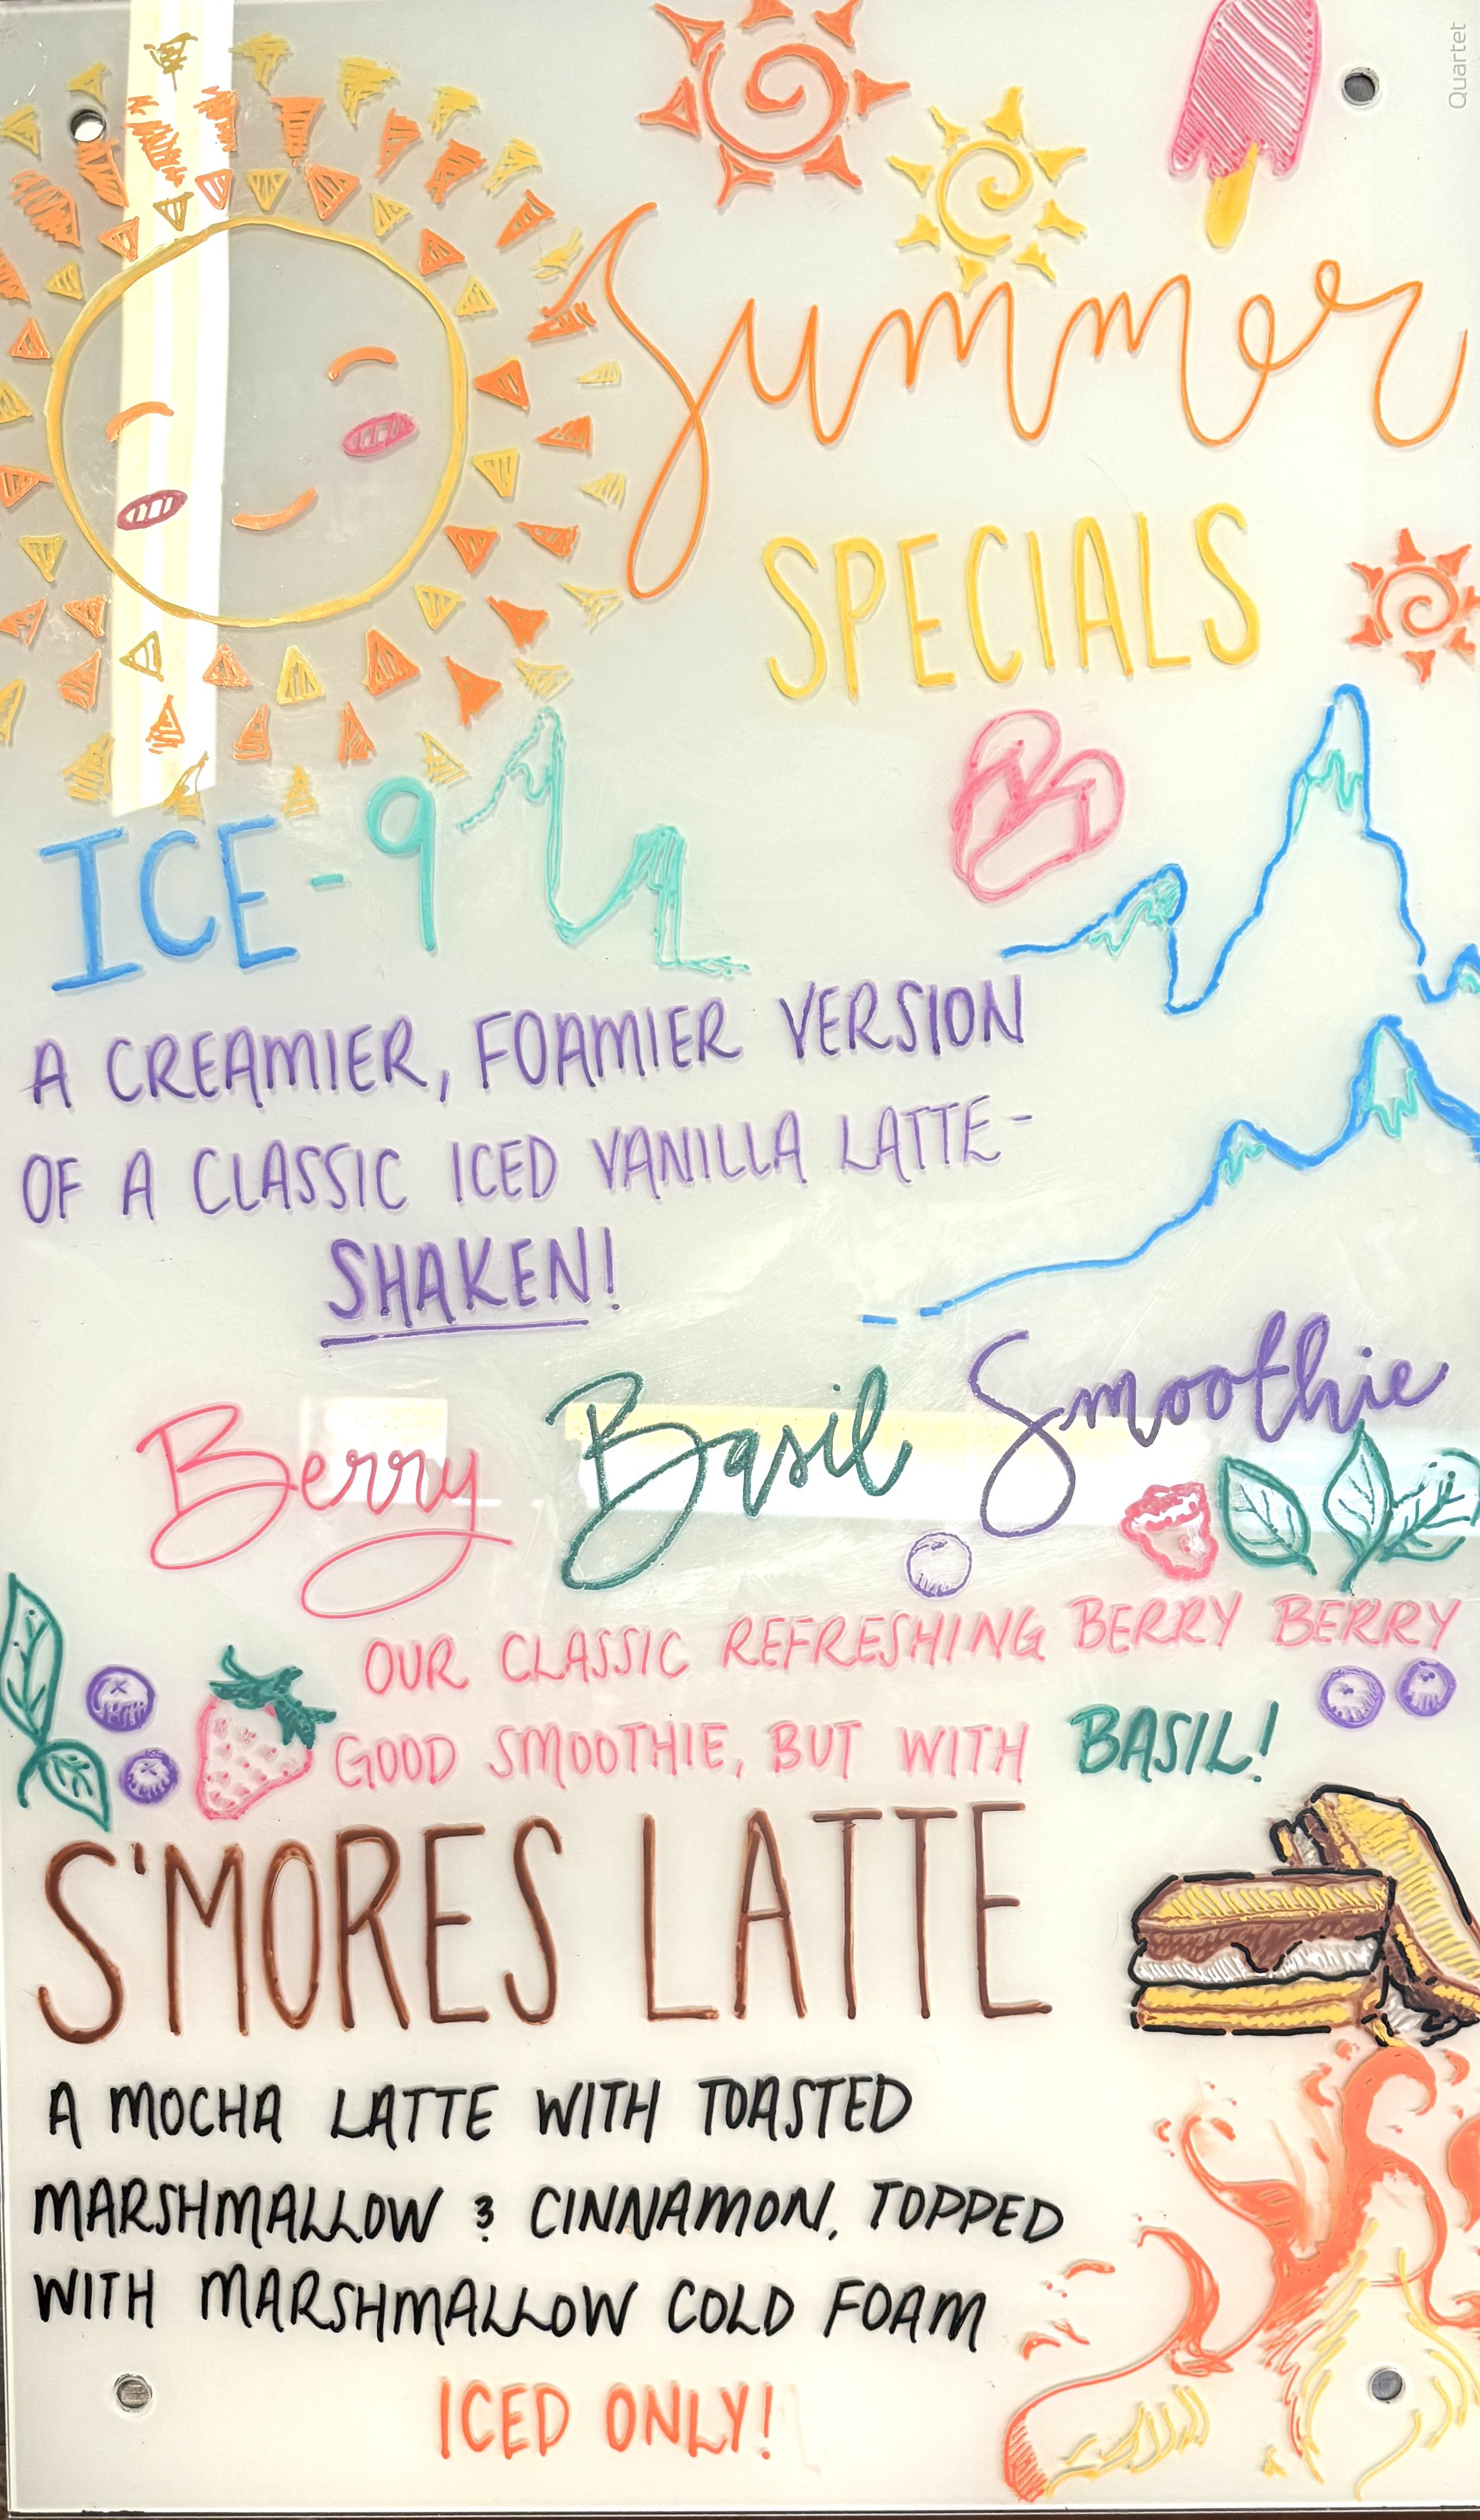 Quartet
Summer
SPECIALS
ICE-9
A CREAMIER, FOAMIER VERSION
OF A CLASSIC ICED VANILLA LATTE-
SHAKEN!
Berry Basil Smoothie
OUR CLASSIC REFRESHING BERRY BERRY
GOOD SMOOTHIE, BUT WITH BASIL!
S'MORES LATTE
A MOCHA LATTE WITH TOASTED
MARSHMALLOW & CINNAMON, TOPPED
WITH MARSHMALLOW COLD FOAM
ICED ONLY!